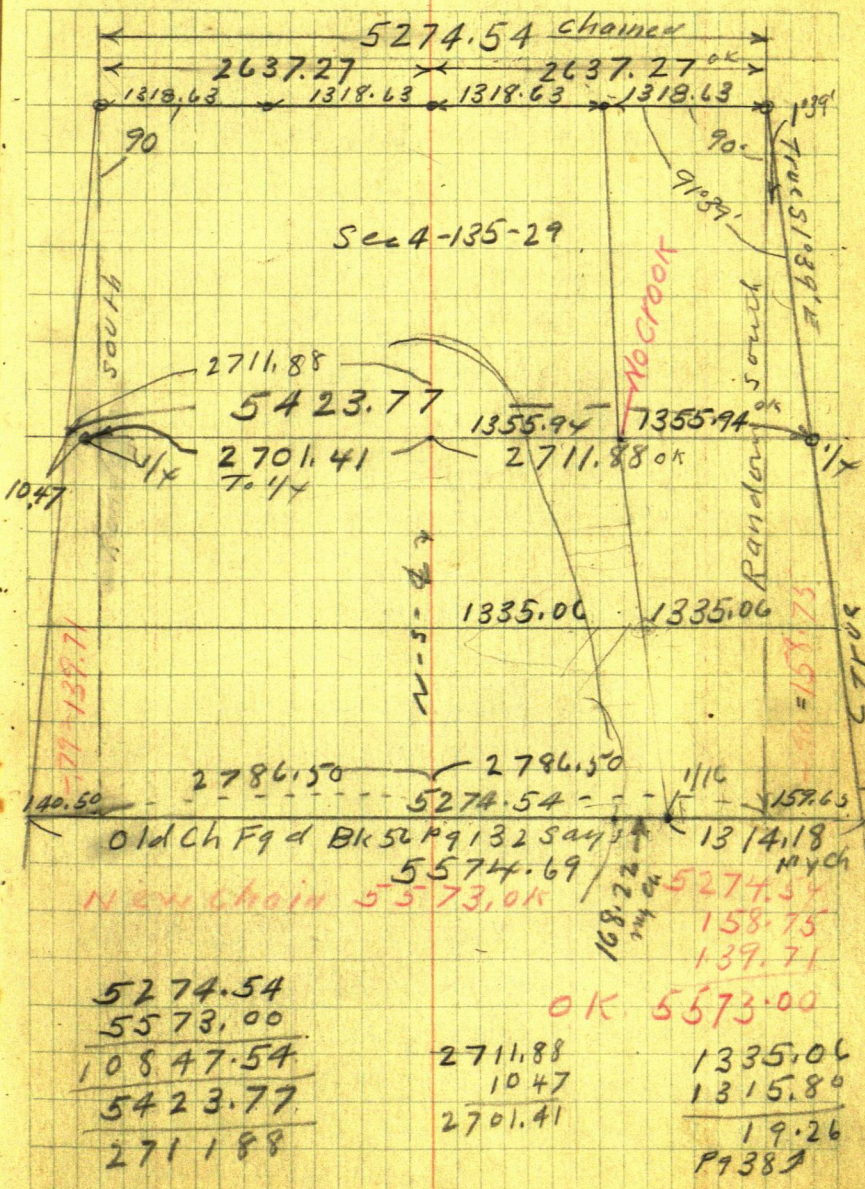 5274.54 chained
2637.27 2637.27 OK
1318.63 1318.63 1318.63 1318.63
1°39'
90 90-
91°39'
True S1°39'E
Sec 4-135-29
South
No Crook
Random South
2711.88
5423.77
1355.94 1355.94 OK
1/4 2701.41 2711.88 OK 1/4
To 1/4
10.47
N-S-
1335.06 1335.06
.79=139.71
.90=158.75
True
2786.50 2786.50 1/16
140.50 5274.54 159.65
Old Ch Fg d Bk 56 Pg 132 Says 1314.18
My Ch
5574.69
168.22
my Ch
New Chain 5573, OK
5274.54
158.75
139.71
OK 5573.00
5274.54
5573.00
10847.54
5423.77
271188
2711.88
1047
2701.41
1335.06
1315.80
19.26
Pg 38